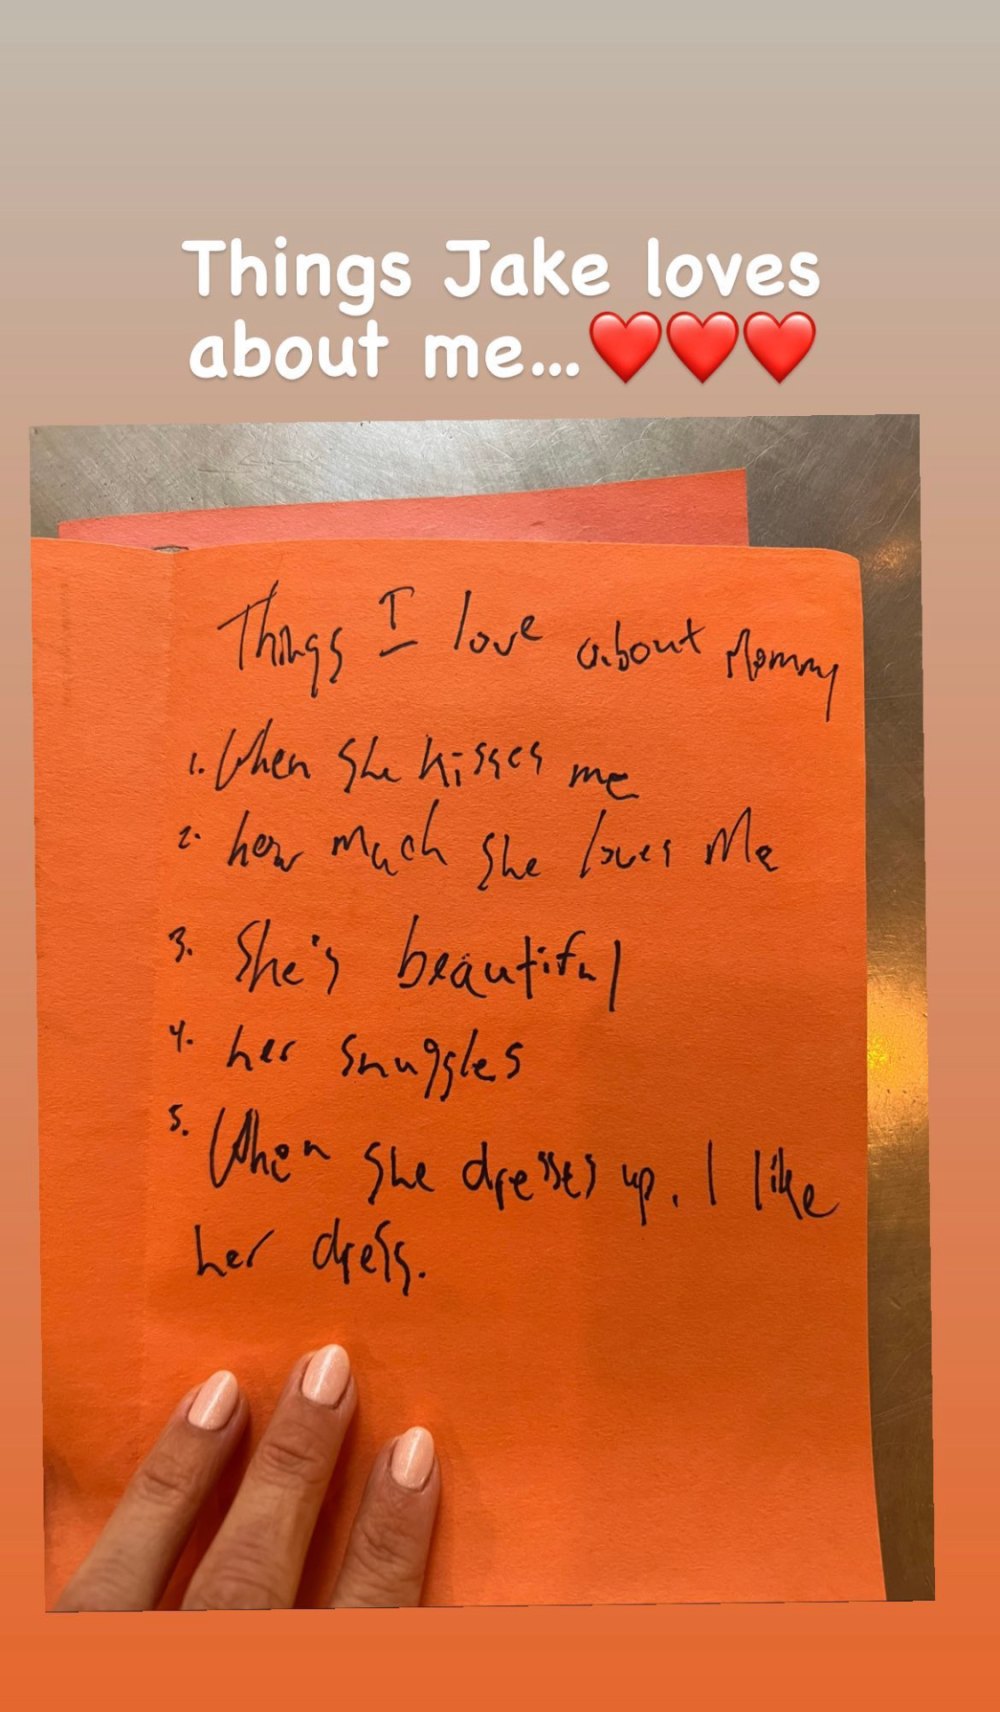 Things Jake loves
about me...❤️❤️❤️
Things I love about Mommy
1. When she kisses me
2. how much she loves Me
3. She's beautiful
4. her snuggles
5. When she dresses up. I like
her dress.